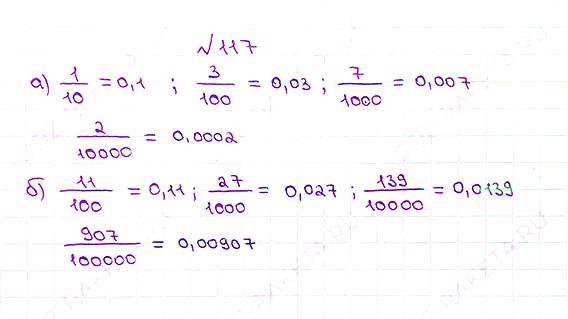 №117
а) 1/10 = 0,1 ; 3/100 = 0,03 ; 7/1000 = 0,007
2/10000 = 0,0002
б) 11/100 = 0,11 ; 27/1000 = 0,027 ; 139/10000 = 0,0139
907/100000 = 0,00907